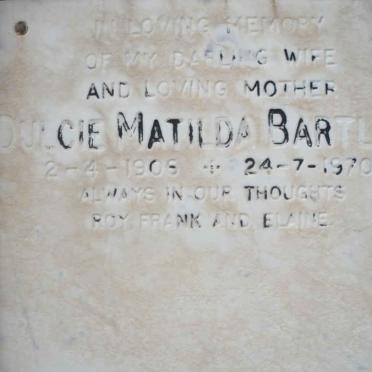 IN LOVING MEMORY
OF MY DARLING WIFE
AND LOVING MOTHER
DULCIE MATILDA
2-4-1905 + 24-7-1970
ALWAYS IN OUR THOUGHTS
ROY, FRANK AND ELAINE